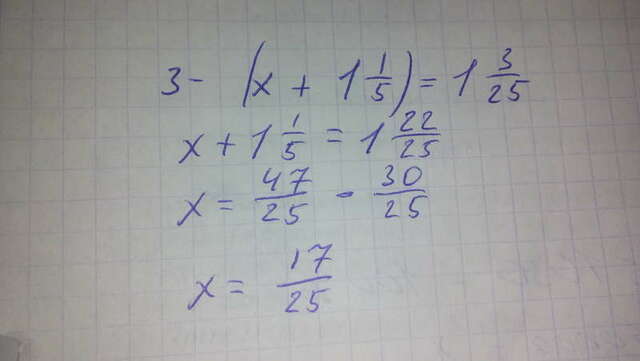 3 - (x + 1 1/5) = 1 3/25
x + 1 1/5 = 1 22/25
x = 47/25 - 30/25
x = 17/25